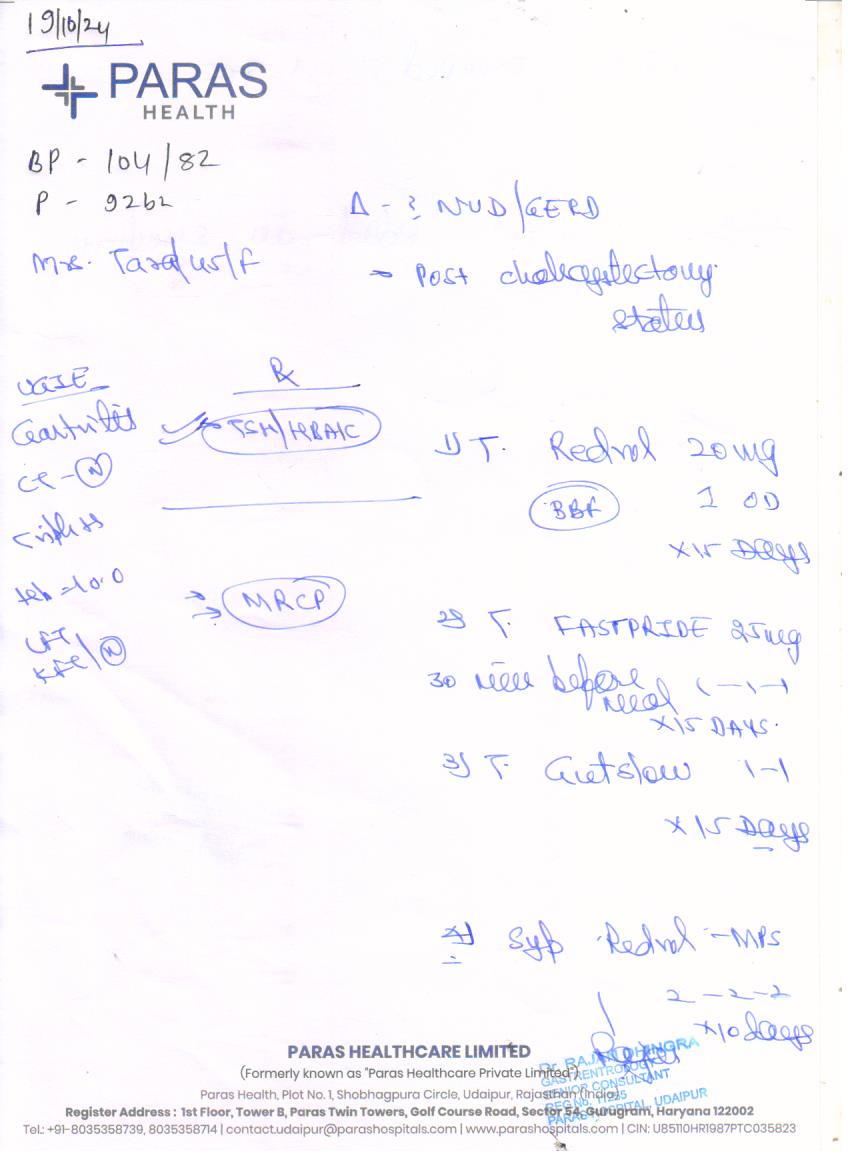 19/10/24
PARAS
HEALTH
BP - 104/82
P - 92b2
Δ - ? NUD/GERD
Mrs. Tara/45/F
→ Post cholecystectomy
status
UGIE
Rx
Gastritis
TSH/HBA1C
1) T. Redvol 20mg
CE - N
BBF 1 OD
x15 Days
Hb = 10.0
MRCP
LFT
KFT / N
2) T. FASTPRIDE 25mg
30 min before meal 1-1-1
x15 DAYS.
3) T. Gutslow 1-1
x15 Days
4) Syp Redvol-MPS
2-2-2
x10 days
PARAS HEALTHCARE LIMITED
Dr. RAJAN DHINGRA
(Formerly known as "Paras Healthcare Private Limited")
GASTRENTROLOGY
SENIOR CONSULTANT
Paras Health, Plot No. 1, Shobhagpura Circle, Udaipur, Rajasthan (India)
REG No.
PARAS HOSPITAL, UDAIPUR
Register Address : 1st Floor, Tower B, Paras Twin Towers, Golf Course Road, Sector 54, Gurugram, Haryana 122002
Tel.: +91-8035358739, 8035358714 | contact.udaipur@parashospitals.com | www.parashospitals.com | CIN: U85110HR1987PTC035823